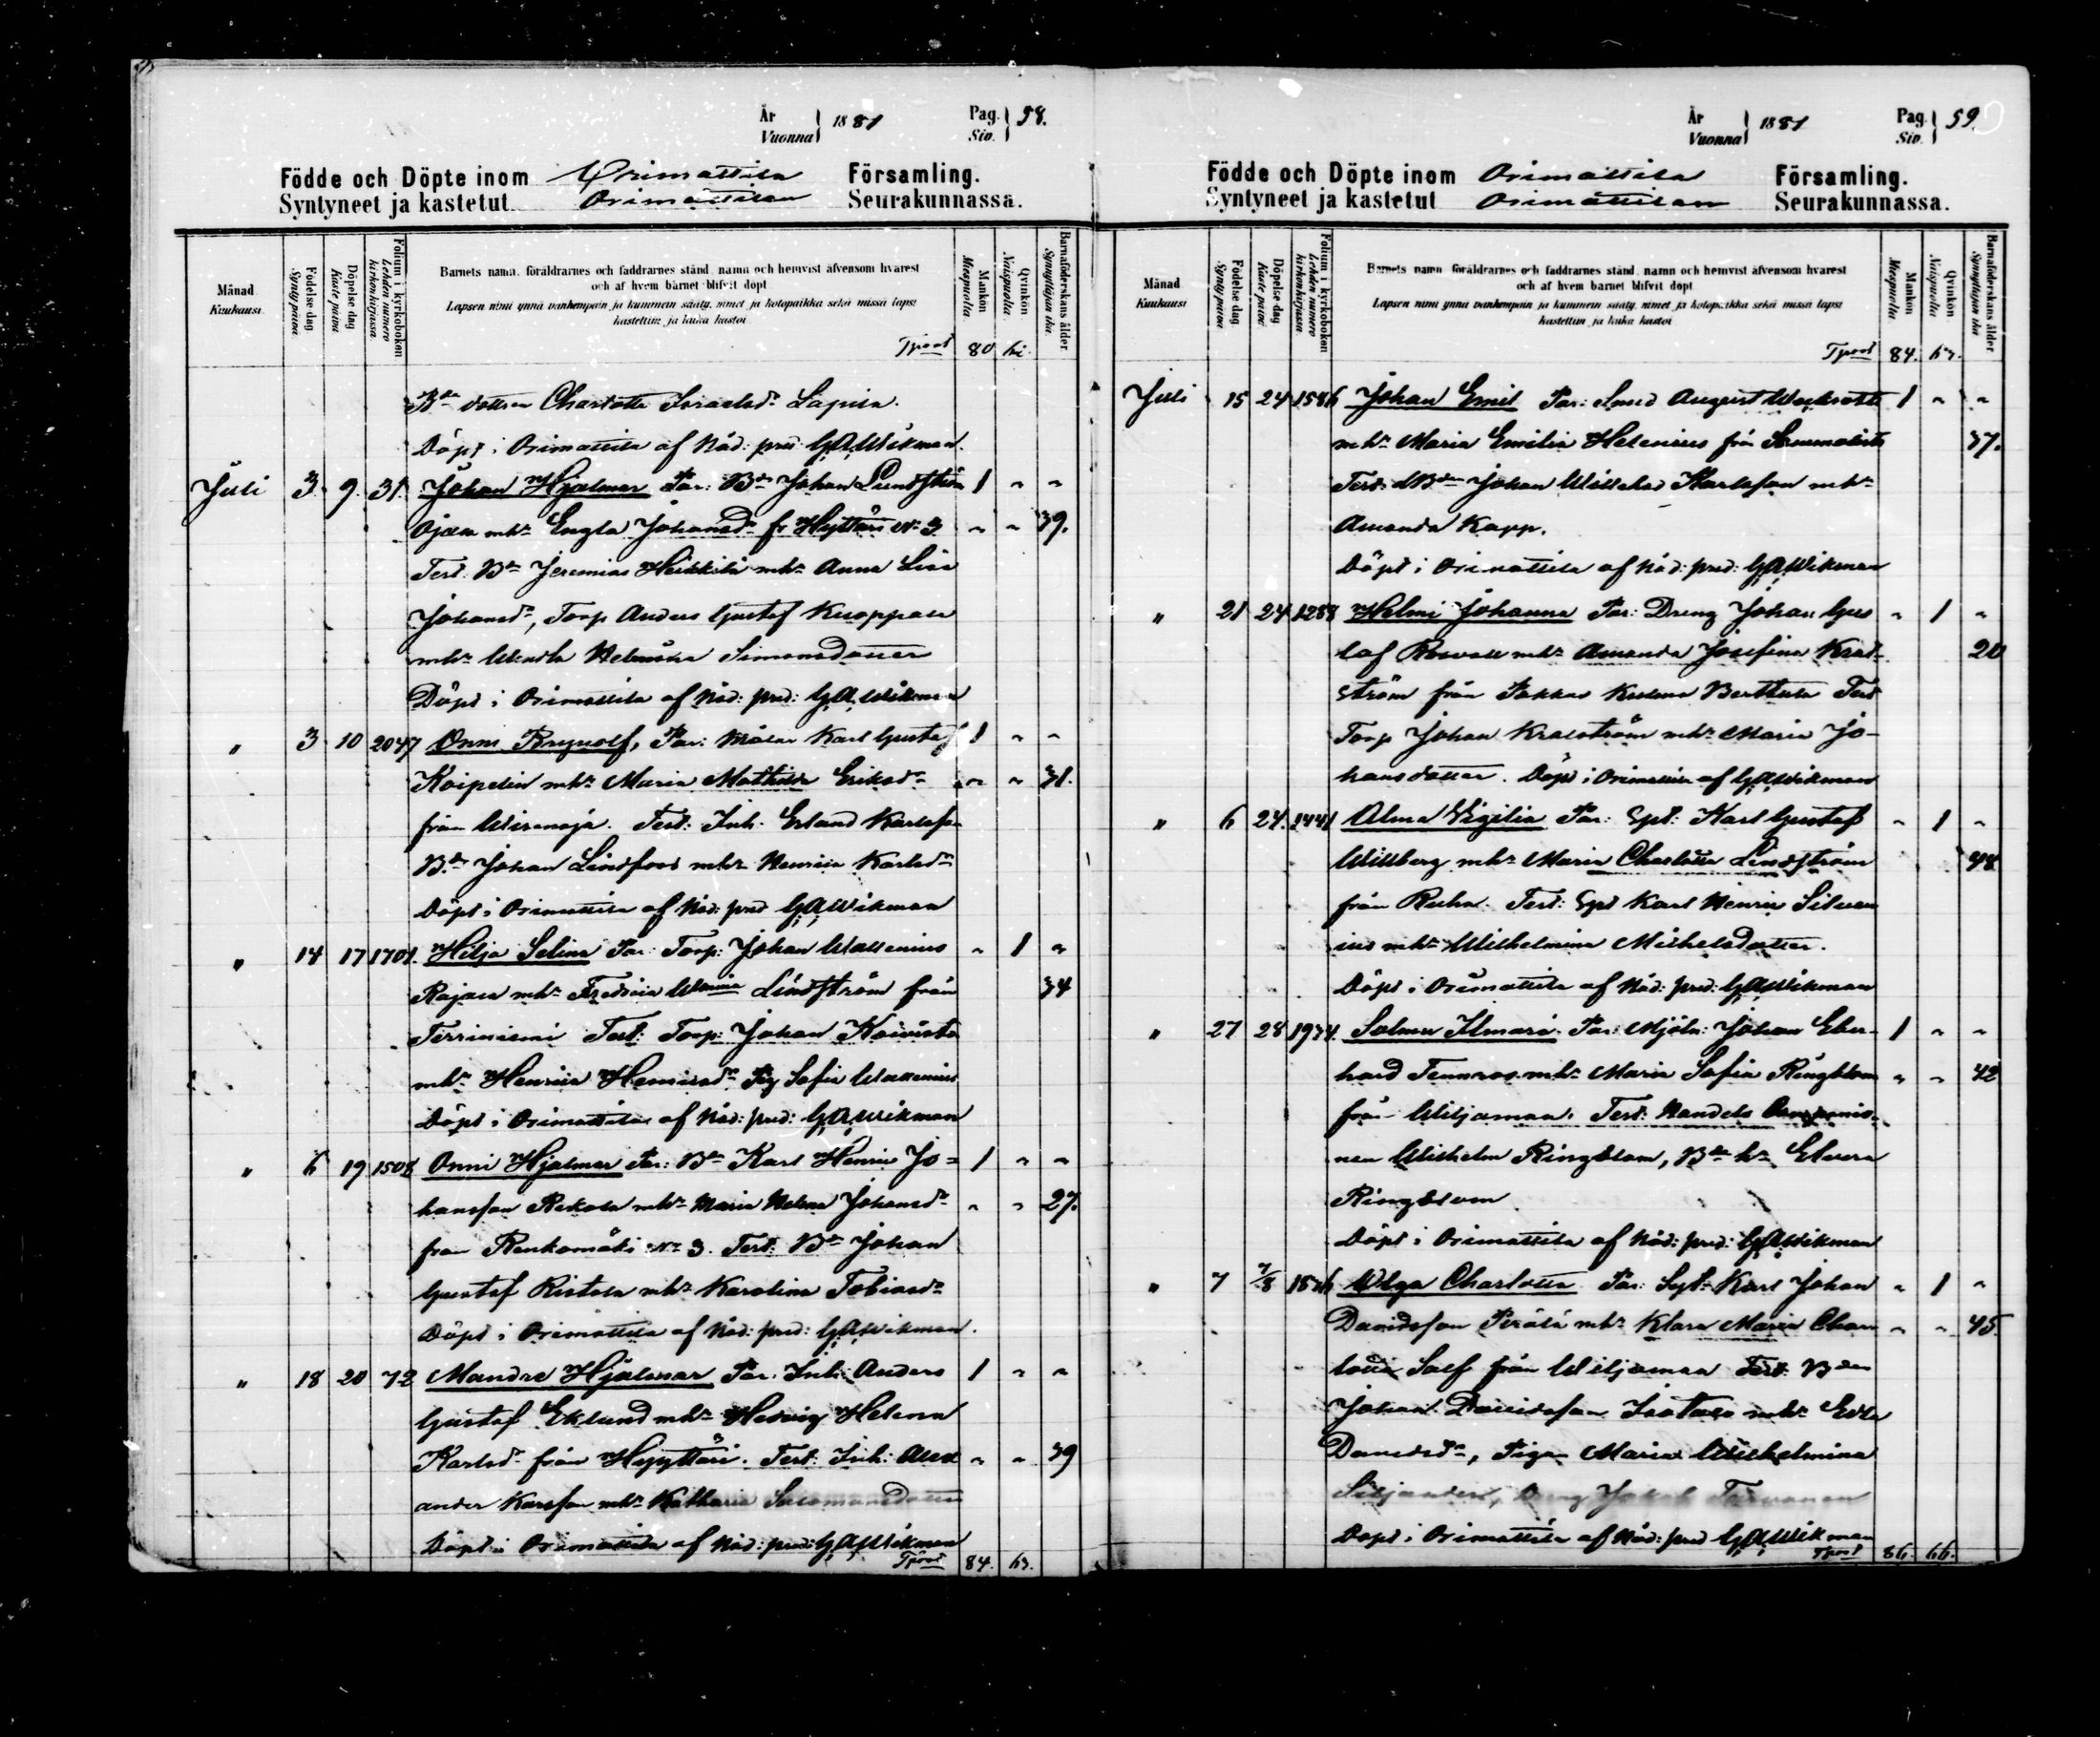 År
Vuonna } 1881
Pag.
Siv. } 58.
Födde och Döpte inom Orimattila Församling.
Syntyneet ja kastetut Orimattilan Seurakunnassa.
Månad
Kuukausi
Födelse dag
Syntypäivä
Döpelse dag
Kastepäivä
Folium i kyrkoboken
Lehden numero kirkonkirjassa
Barnets namn, föräldrarnes och faddrarnes stånd, namn och hemvist äfvensom hvarest
och af hvem barnet blifvit döpt
Lapsen nimi ynnä vanhempain ja kummein sääty, nimet ja kotopaikka sekä missä lapsi
kastettiin ja kuka kastoi
Mankön
Miespuolia
Qvinkön
Naispuolia
Barnaföderskans ålder
Synnyttäjän ikä
Tpoot 80
dottren Charlotta Israelsdr Lapila.
Döpt i Orimattila af Nåd: pred: G.A. Wikman.
Juli 3. 9. 31. Johan Hjalmar Par: Bd Johan Lundström 1 " "
Ojala mhn Engla Johansdr fr Hyttäri No 3 " " 39.
Test: Bdn Jeremias Heikkilä mhn Anna Lisa
Johansdr, Torp Anders Gustaf Knoppala
mhn Helena Simonsdotter
Döpt i Orimattila af Nåd: pred: G.A. Wikman
" 3 10 2047 Onni Brynolf, Par: Karl Gustaf 1 " "
Koipelin mhn Maria Mathilda Eriksdr " " 31.
från Wirenoja. Test: Inh. Erland Karlsson
Bdn Johan Lindfors mhn Henrica Karlsdr
Döpt i Orimattila af Nåd: pred G.A. Wikman
" 14 17 1701. Hilja Selina Par: Torp: Johan Wallenius " 1 "
Rajala mhn Fredrica Lindström från 34
Terriniemi Test: Torp: Johan Koivisto
mhn Henrica Henricsdr Pig Sofia Wallenius
Döpt i Orimattila af Nåd: pred: G.A. Wikman
" 6 19 1508 Onni Hjalmar Par: Bdn Karl Henric Jo- 1 " "
hansson Rekola mhn Maria Helena Johansdr " " 27.
från Renkomäki No 3. Test: Bdn Johan
Gustaf Ristola mhn Karolina Tobiasdr
Döpt i Orimattila af Nåd: pred: G.A. Wikman.
" 18 20 72 Mandre Hjalmar Par: Inh: Anders 1 " "
Gustaf Eklund mhn Hedvig Helena
Karlsdr från Hyyttäri. Test: Inh: Alex " " 39
ander Karlsson mhn Katharia Salomonsdotter
Döpt i Orimattila af Nåd: pred: G.A. Wikman
Tpoot 84. 63.
År
Vuonna } 1881
Pag.
Siv. } 59.
Födde och Döpte inom Orimattila Församling.
Syntyneet ja kastetut Orimattilan Seurakunnassa.
Månad
Kuukausi
Födelse dag
Syntypäivä
Döpelse dag
Kastepäivä
Folium i kyrkoboken
Lehden numero kirkonkirjassa
Barnets namn, föräldrarnes och faddrarnes stånd, namn och hemvist äfvensom hvarest
och af hvem barnet blifvit döpt
Lapsen nimi ynnä vanhempain ja kummein sääty, nimet ja kotopaikka sekä missä lapsi
kastettiin ja kuka kastoi
Mankön
Miespuolia
Qvinkön
Naispuolia
Barnaföderskans ålder
Synnyttäjän ikä
Tpoot 84. 63.
Juli 15 24 1586 Johan Emil Par: Smed August 1 " "
mhn Maria Emilia Helenius från 37.
Test: Johan Willehad Karlsson mhn
Amanda Kapp.
Döpt i Orimattila af Nåd: pred: G.A. Wikman
" 21 24 1288 Helmi Johanna Par: Dreng Johan Gus " 1 "
taf Rosvall mhn Amanda Josefina Krad- 20
ström från Pakkas Kulma Berttula Test
Torp Johan Kradström mhn Maria Jo-
hansdotter. Döpt i Orimattila af G.A. Wikman
" 6 24. 2441 Alma Vigilia Par: Spt: Karl Gustaf " 1 "
Willberg mhn Maria Charlotta Lindström 48
från Ruha. Test: Spt Karl Henric Silven
ius mhn Wilhelmina Michelsdotter.
Döpt i Orimattila af Nåd: pred: G.A. Wikman
" 27 28 1934. Salmu Ilmari. Par: Mjöln: Johan Eber- 1 " "
hard Tennros mhn Maria Sofia Ringblom " " 42
från Wiljamaa. Test: Handels
nen Wilhelm Ringblom, Bdn hn Elvera
Ringblom
Döpt i Orimattila af Nåd: pred: G.A. Wikman
" 7 7/8 Olga Charlotta Par: Syt: Karl Johan " 1 "
Davidsson Perälä mhn Klara Maria Char " " 45
lotta Salf från Wiljamaa Test: Bdn
Johan Davidsson Isotalo mhn Edla
Davidsdr, Pigan Maria Wilhelmina
Siljander, Dreng Jakob
Döpt i Orimattila af Nåd: pred G.A. Wikman
Tpoot 86. 66.